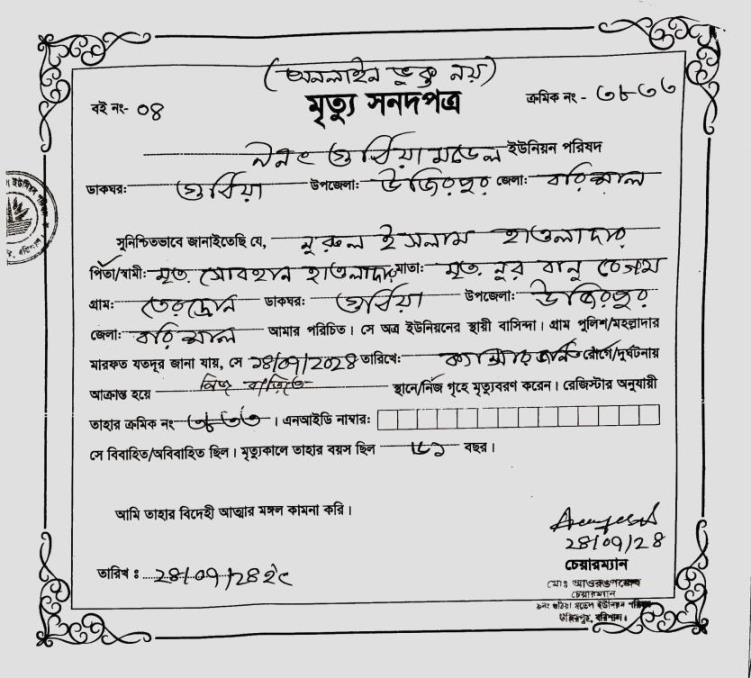 (অনলাইন ভুক্ত নয়)
বই নং- ০৪ মৃত্যু সনদপত্র ক্রমিক নং - ৩৮৩৩
৯নং গুঠিয়া মডেল ইউনিয়ন পরিষদ
ডাকঘর: গুঠিয়া উপজেলা: উজিরপুর জেলা: বরিশাল
সুনিশ্চিতভাবে জানাইতেছি যে, নুরুল ইসলাম হাওলাদার
পিতা/স্বামী: মৃত. সোবহান হাওলাদার মাতা: মৃত. নুর বানু বেগম
গ্রাম: ডাকঘর: গুঠিয়া উপজেলা: উজিরপুর
জেলা: বরিশাল আমার পরিচিত। সে অত্র ইউনিয়নের স্থায়ী বাসিন্দা। গ্রাম পুলিশ/মহল্লাদার
মারফত যতদূর জানা যায়, সে ১৪/০৭/২০২৪ তারিখে: ক্যান্সার জনিত রোগে/দুর্ঘটনায়
আক্রান্ত হয়ে নিজ বাড়িতে স্থানে/নিজ গৃহে মৃত্যুবরণ করেন। রেজিস্টার অনুযায়ী
তাহার ক্রমিক নং ৩৮৩৩ । এনআইডি নাম্বার:
সে বিবাহিত/অবিবাহিত ছিল। মৃত্যুকালে তাহার বয়স ছিল বছর।
আমি তাহার বিদেহী আত্মার মঙ্গল কামনা করি।
২৪/০৭/২৪
তারিখ : ২৪/০৭/২৪ ইং চেয়ারম্যান
মোঃ আওরঙ্গজেব
চেয়ারম্যান
৯নং গুঠিয়া মডেল ইউনিয়ন পরিষদ
উজিরপুর, বরিশাল।